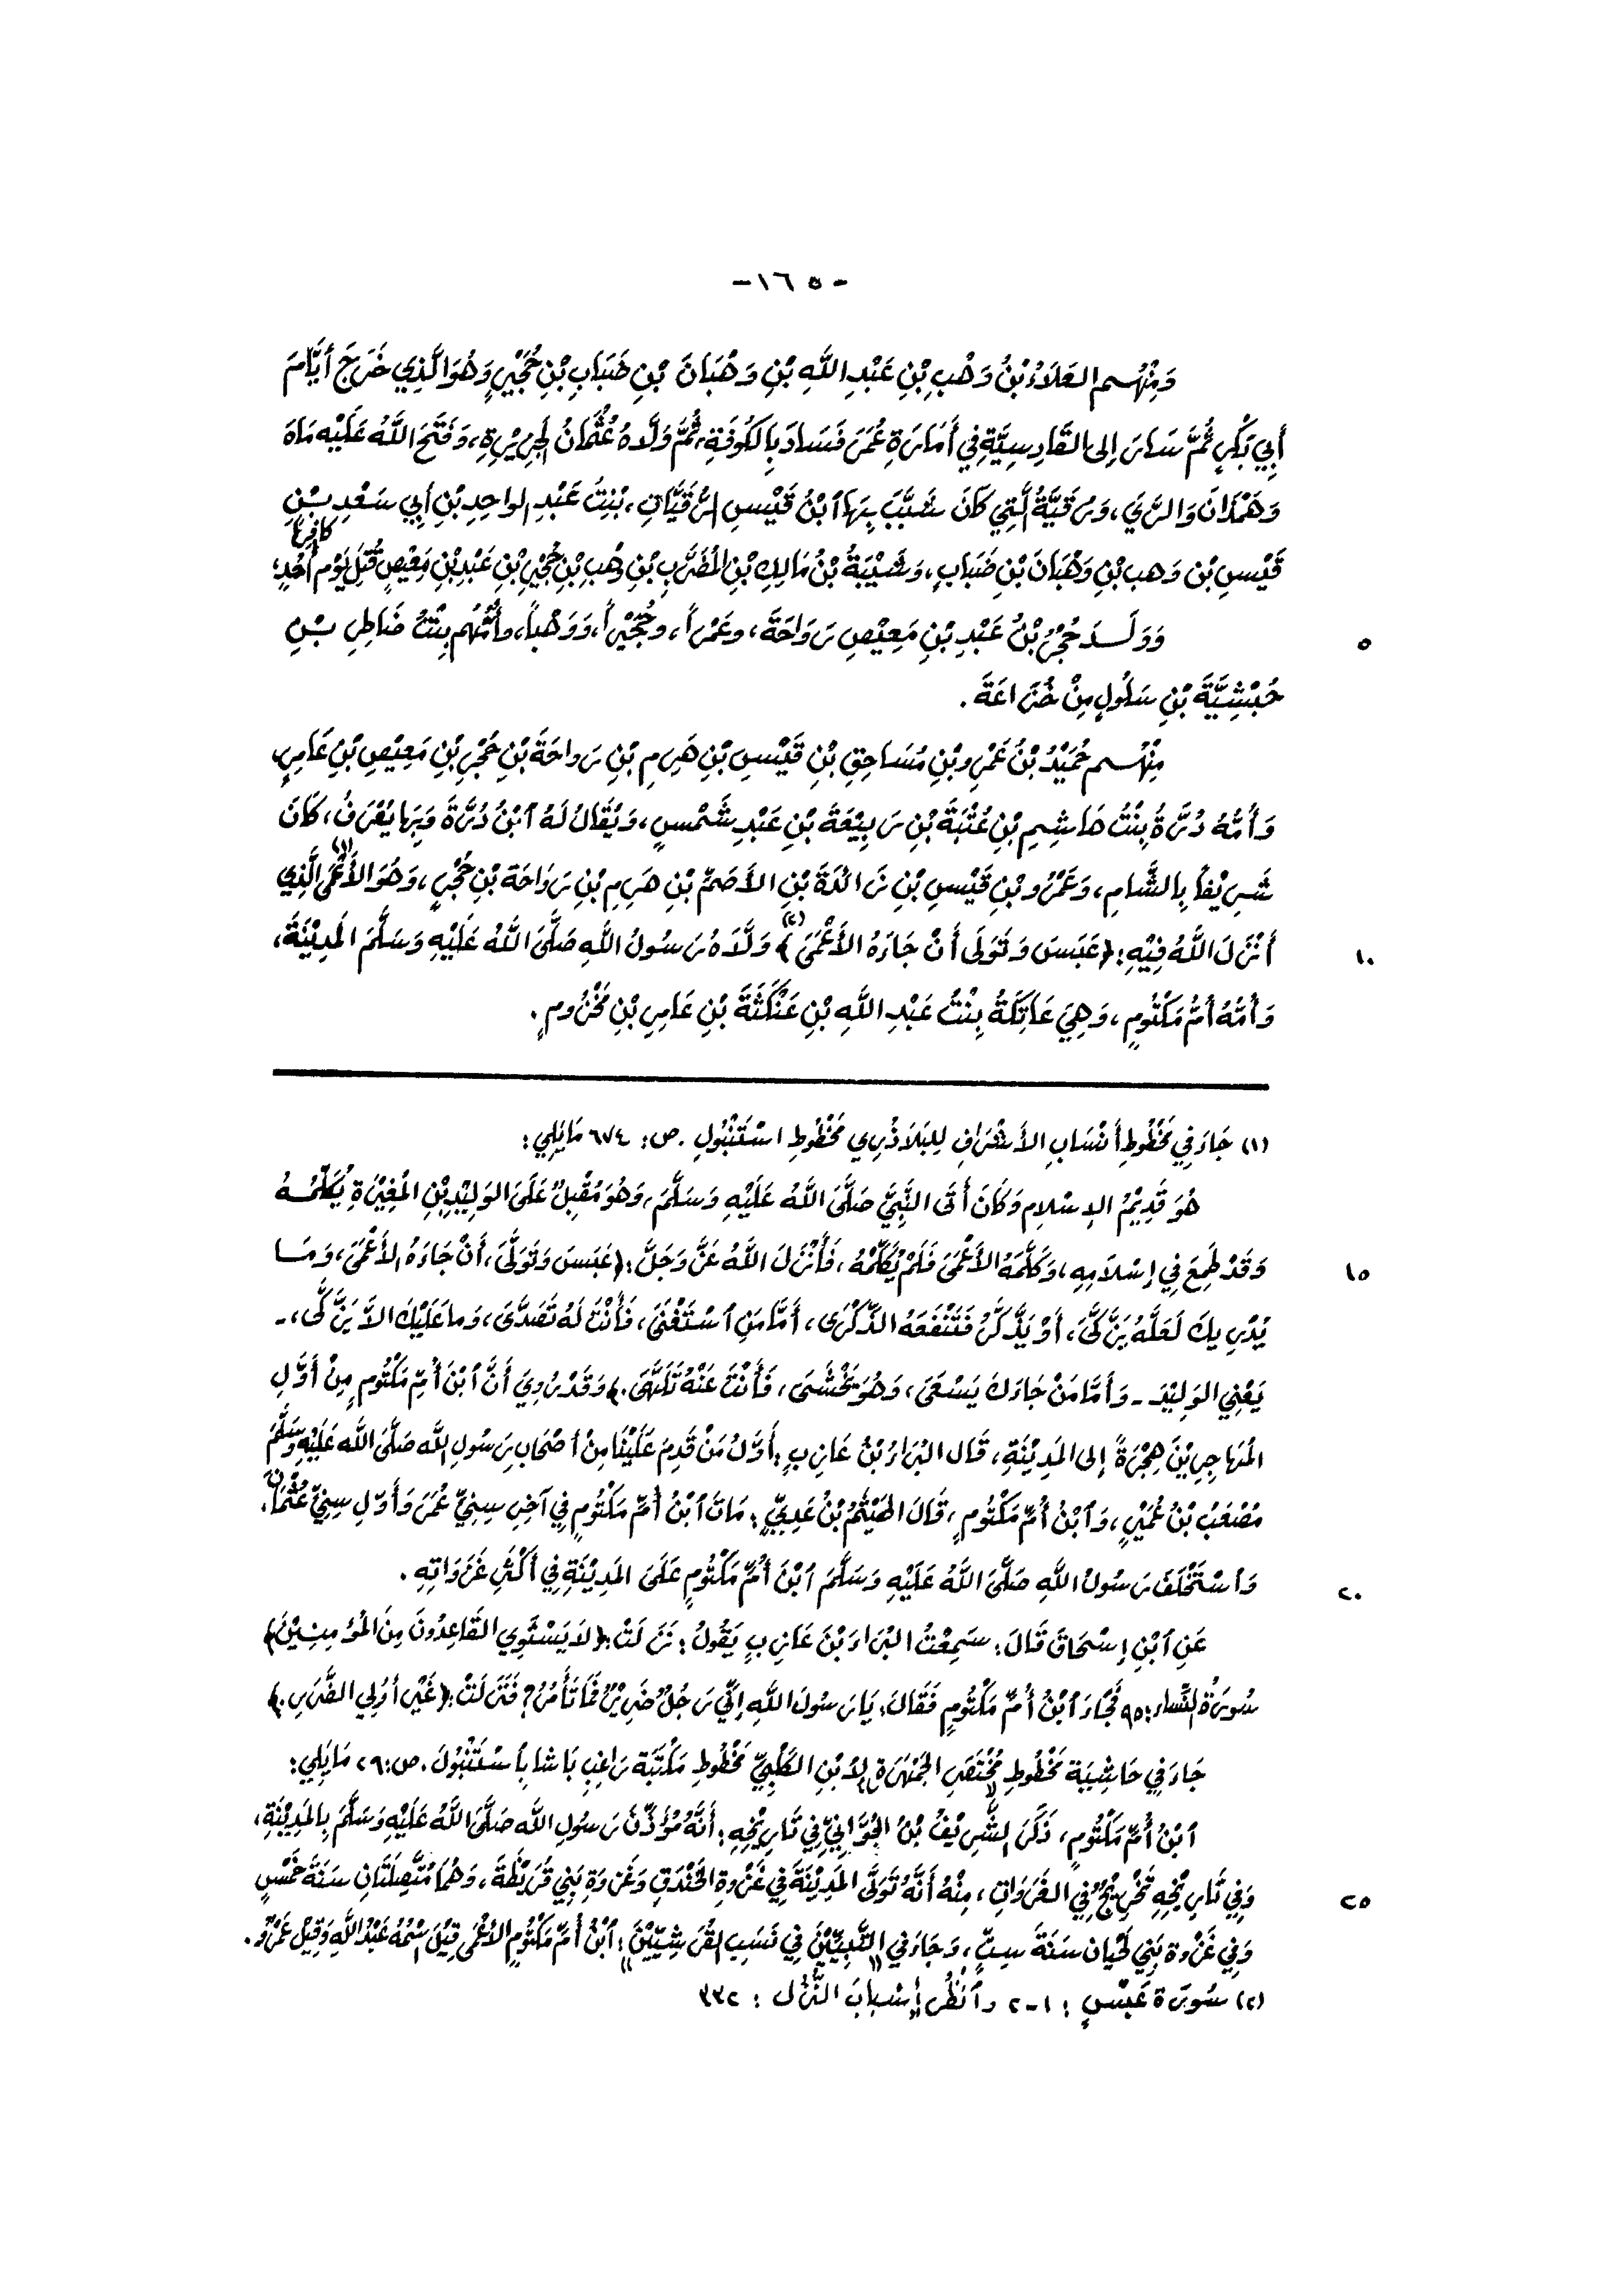 -١٦٥-
وَمِنْهُم العَلَاءُ بْنُ وَهْبِ بْنِ عَبْدِ اللَّهِ بْنِ وَهْبَانَ بْنِ ضَبَابِ بْنِ حُجَيْرٍ وَهُوَ الَّذِي خَرَجَ أَيَّامَ
أَبِي بَكْرٍ ثُمَّ سَارَ إِلى القَادِسِيَّةِ فِي أَمَارَةِ عُمَرَ فَسَادَ بِالكُوفَةِ، ثُمَّ وَلَّاهُ عُثْمَانُ الجَزِيْرَةِ، وَفَتَحَ اللَّهُ عَلَيْهِ مَاهَ
وَهَمْذَانَ وَالرَّيَ، وَرُقَيَّةُ الَّتِي كَانَ شَبَّبَ بِهَا ٱبْنُ قَيْسِ الرُّقَيَّاتِ، بْنْتُ عَبْدِ الواحِدِ بْنِ أَبِي سَعْدِ بْنِ
قَيْسِ بْنِ وَهبِ بْنِ وَهْبَانَ بْنِ ضَبَابٍ، وَشَيْبَةُ بْنُ مَالِكِ بْنِ المُضَرَّبِ بْنِ وَهْبِ بْنِ حُجَيْرِ بْنِ عَبْدِ بْنِ مَعِيْصٍ قُتِلَ يَوْمَ أُحُدٍ، كافِراً
٥ وَوَلَدَ حُجْرُ بْنُ عَبْدِ بْنِ مَعِيْصِ رَوَاحَةَ، وعَمْراً، وحُجَيْراً، وَوَهْباً، وأُمُّهُم بِنْتُ ضَاطِرِ بْنِ
حُبْشِيَّةَ بْنِ سَلُولٍ مِنْ خُزَاعَةَ.
مِنْهُم حُمَيْدُ بْنُ عَمْرِو بْنِ مُسَاحِقِ بْنِ قَيْسِ بْنِ هَرِمِ بْنِ رَواحَةَ بْنِ حُجْرِ بْنِ مَعِيْصِ بْنِ عَامِرٍ
وَأُمُّهُ دُرَّةُ بِنْتُ هَاشِمِ بْنِ عُتْبَةَ بْنِ رَبِيْعَةَ بْنِ عَبْدِ شَمْسٍ، وَيُقَالُ لَهُ ٱبْنُ دُرَّةَ وَبِهَا يُعْرَفُ، كَانَ
شَرِيْفاً بِالشَّامِ، وَعَمْرُو بْنِ قَيْسِ بْنِ زَائِدَةَ بْنِ الأَصَمِّ بْنِ هَرِمِ بْنِ رَوَاحَةَ بْنِ حُجْرٍ، وَهُوَ الأَعْمَى(١) الَّذِي
١٠ أَنْزَلَ اللَّهُ فِيْهِ: {عَبَسَ وَتَوَلَى أَنْ جَاءَهُ الأَعْمَىَ}(٢) وَلَّاهُ رَسُولُ اللَّهِ صَلَّىَ اللَّهُ عَلَيْهِ وَسَلَّمَ المَدِيْنَةَ،
وَأُمُّهُ أُمُّ مَكْتُومٍ، وَهِيَ عَاتِكَةُ بِنْتُ عَبْدِ اللَّهِ بْنِ عَنْكَثَةَ بْنِ عَامِرِ بْنِ مَخْزُومٍ.
(١) جَاءَ فِي مَخْطُوطِ أَنْسَابِ الأَشْرَافِ لِلبَلَاذُرِي مَخْطُوطِ اسْتَنْبُولِ. ص: ٦٧٤ مَايَلِي:
هُوَ قَدِيْمُ الإِسْلامِ وَكَانَ أَتَى النَّبِيَّ صَلَّىَ اللَّهُ عَلَيْهِ وَسَلَّمَ، وَهُوَ مُقْبِلٌ عَلَىَ الوَلِيْدِ بْنِ المُغِيْرَةِ يُكَلِّمُهُ
١٥ وَقَدْ طَمِعَ فِي إِسْلَامِهِ، وَكَلَّمَهُ الأَعْمَىَ فَلَمْ يُكَلِّمْهُ، فَأَنْزَلَ اللَّهُ عَزَّ وَجَلَّ: {عَبَسَ وَتَوَلَّىَ، أَنْ جَاءَهُ الأَعْمَىَ، وَمَا
يُدْرِيكَ لَعَلَّهُ يَزَّكَّىَ، أَوْ يَذَّكَّرُ فَتَنْفَعَهُ الذِّكْرَى، أَمَّا مَنِ ٱسْتَغْنَىَ، فَأَنْتَ لَهُ تَصَدَّىَ، وَمَا عَلَيْكَ الاَّ يَزَّكَّى، -
يَعْنِي الوَلِيْدَ - وَأَمَّا مَنْ جَاءَكَ يَسْعَىَ، وَهُوَ يَخْشَىَ، فَأَنْتَ عَنْهُ تَلَهَّىَ.} وَقَدْ رُوِيَ أَنَّ ٱبْنَ أُمِّ مَكْتُومٍ مِنْ أَوَّلِ
المُهَاجِرِيْنَ هِجْرَةً إِلى المَدِيْنَةِ، قَال البَرَاءُ بْنُ عَازِبٍ: أَوَّلُ مَنْ قَدِمَ عَلَيْنَا مِنْ أَصْحَابِ رَسُولِ اللَّه صَلَّىَ اللَّه عَلَيْهِ وَسَلَّمَ
مُصْعَبُ بْنُ عُمَيْرٍ، وَٱبْنُ أُمِّ مَكْتُومٍ، قَالَ الهَيْثَمُ بْنُ عَدِيٍّ: مَاتَ ٱبْنُ أُمِّ مَكْتُومٍ فِي آخِرِ سِنِيِّ عُمَرَ وَأَوَّلِ سِنِيِّ عُثْمَانَ،
٢٠ وَٱسْتَخْلَفَ رَسُولُ اللَّهِ صَلَّىَ اللَّهُ عَلَيْهِ وَسَلَّمَ ٱبْنَ أُمِّ مَكْتُومٍ عَلَىَ المَدِيْنَةِ فِي أَكْثَرِ غَزَوَاتِهِ.
عَنِ ٱبْنِ إِسْحَاقَ قَالَ: سَمِعْتُ البَرَاءَ بْنَ عَازِبٍ يَقُولُ: نَزَلَتْ: {لاَ يَسْتَوِي القَاعِدُونَ مِنَ المُؤْمِنِيْنَ}
سُورَةُ النِّسَاء: ٩٥ فَجَاءَ ٱبْنُ أُمِّ مَكْتُومٍ فَقَالَ: يَا رَسُولَ اللَّهِ إِنِّي رَجُلٌ ضَرِيْرٌ فَمَا تَأْمُرُ؟ فَنَزَلَتْ: {غَيْرِ أوَلِي الضَّرَرِ.}
جَاءَ فِي حَاشِيَةِ مَخْطُوطِ "مُخْتَصَرِ الجَمْهَرَةِ" لِابْنِ الكَلْبِيِّ مَخْطُوطِ مَكْتَبَة رَاغِبِ بَاشَا بِاْسْتَنْبُولَ. ص: ٢٦ مَايَلِي:
ٱبْنُ أُمِّ مَكْتُومٍ، ذَكَرَ الشَّرِيْفُ بْنُ الجُوَّانِيِّ فِي تَارِيْخِهِ: أَنَّهُ مُؤَذِّنَ رَسُولِ اللَّه صَلَّىَ اللَّهُ عَلَيْهِ وَسَلَّمَ بِالمَدِيْنَةِ،
٢٥ وَفِي تَارِيْخِهِ تَخْرِيْجٌ فِي الغَزَوَاتِ، مِنْهُ أَنَّهُ تَوَلَّىَ المَدِيْنَةَ فِي غَزْوةِ الخَنْدَقِ وَغَزْوَةِ بَنِي قُرَيْظَةَ، وَهُمَا مُتَّصِلَتَانِ سَنَةَ خَمْسٍ
وَفِي غَزْوَةِ بَنِي لَحْيَان سَنَةَ سِتٍّ، وَجَاءَ فِي "التَّبِيِّيْنَ فِي نَسَبِ القُرَشِيِّيْنَ": ٱبْنُ أُمِّ مَكْتُومٍ الأَعْمَى قِيْلَ اسْمُهُ عَبْدُ اللَّهِ وَقِيْلَ عَمْرٌو.
(٢) سُورَة عَبَسٍ: ١-٢ وٱنْظُر "أَسْبَابَ النُّزُلِ": ٣٣٢